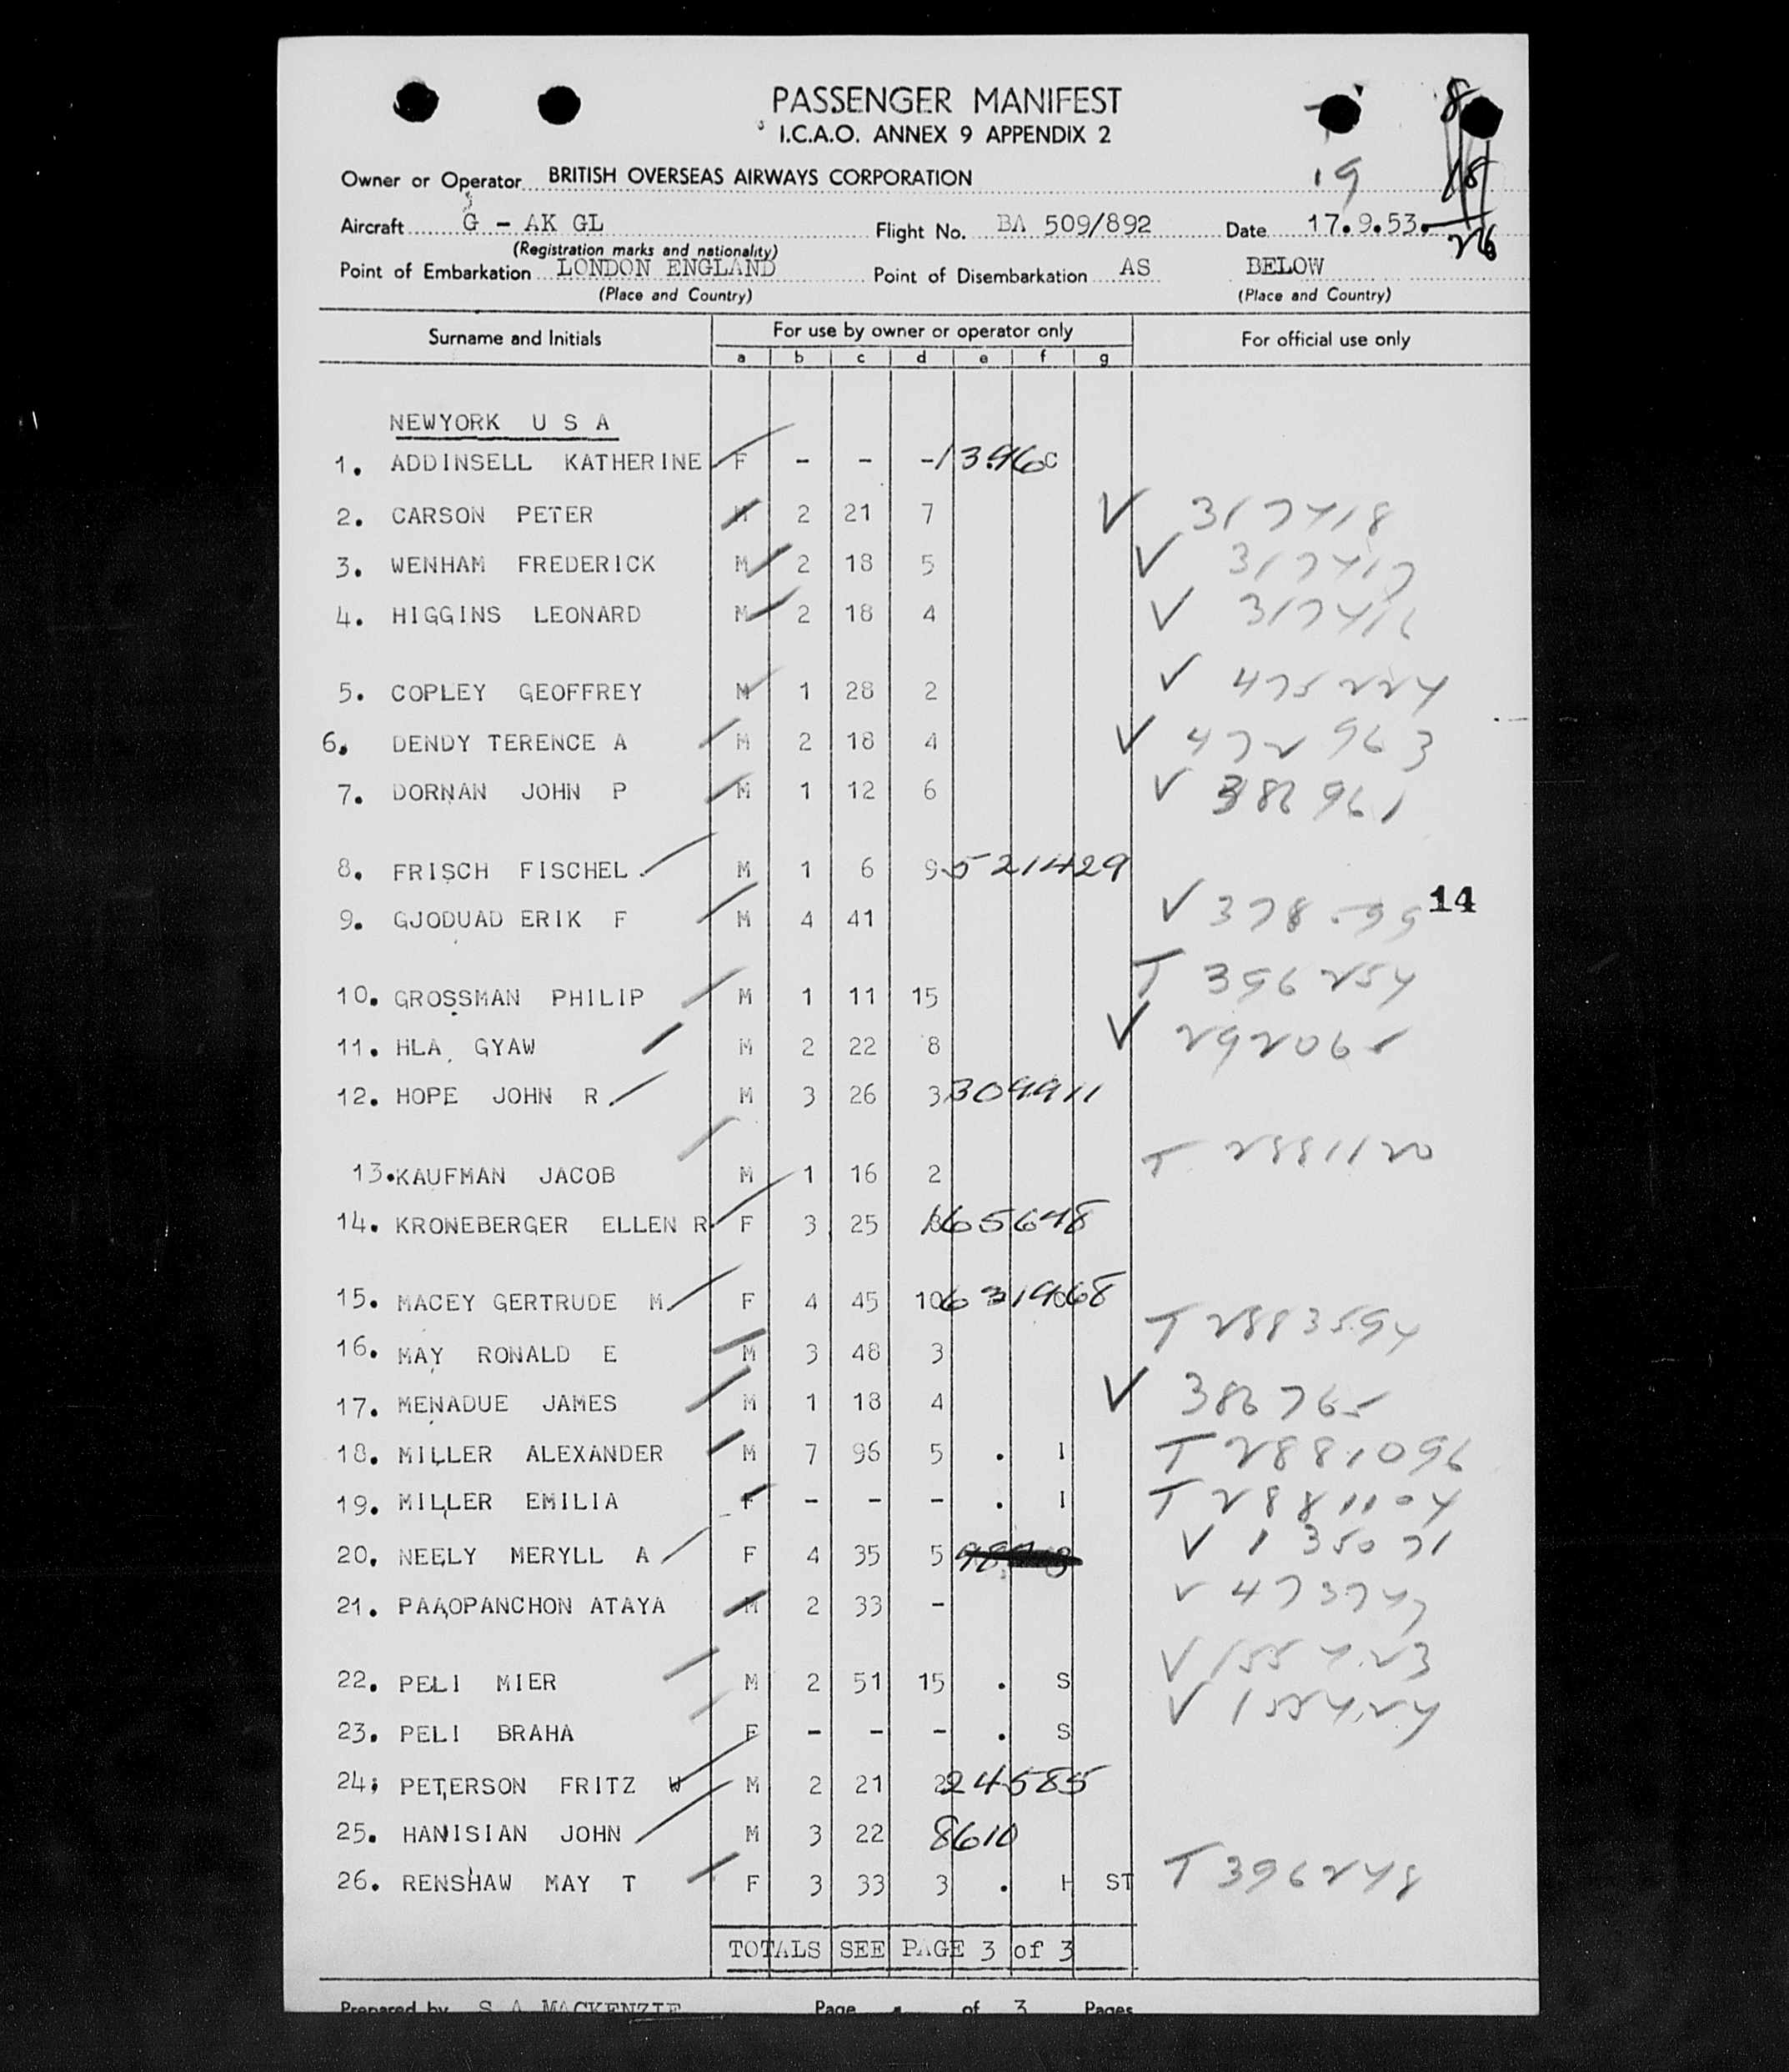 PASSENGER MANIFEST
I.C.A.O. ANNEX 9 APPENDIX 2
Owner or Operator BRITISH OVERSEAS AIRWAYS CORPORATION 19 8 18
Aircraft G - AK GL Flight No. BA 509/892 Date 17.9.53. 26
(Registration marks and nationality)
Point of Embarkation LONDON ENGLAND Point of Disembarkation AS BELOW
(Place and Country) (Place and Country)
Surname and Initials For use by owner or operator only For official use only
a b c d e f g
NEWYORK U S A
1. ADDINSELL KATHERINE F - - - 1396 C
2. CARSON PETER M 2 21 7 V 317418
3. WENHAM FREDERICK M 2 18 5 V 317417
4. HIGGINS LEONARD M 2 18 4 V 317416
5. COPLEY GEOFFREY M 1 28 2 V 475224
6. DENDY TERENCE A M 2 18 4 V 472963
7. DORNAN JOHN P M 1 12 6 V
8. FRISCH FISCHEL M 1 6 9 521429
9. GJODUAD ERIK F M 4 41 V 14
10. GROSSMAN PHILIP M 1 11 15 T 396254
11. HLA GYAW M 2 22 8 V 292065
12. HOPE JOHN R M 3 26 3 309911
13. KAUFMAN JACOB M 1 16 2 T 2881120
14. KRONEBERGER ELLEN R F 3 25 8 165648
15. MACEY GERTRUDE M F 4 45 10 631968
16. MAY RONALD E M 3 48 3 T 2883594
17. MENADUE JAMES M 1 18 4 V 386765
18. MILLER ALEXANDER M 7 96 5 . I T 2881096
19. MILLER EMILIA F - - - . I T 2881104
20. NEELY MERYLL A F 4 35 5 V 135071
21. PAAOPANCHON ATAYA M 2 33 - V 473747
22. PELI MIER M 2 51 15 . S V 155423
23. PELI BRAHA F - - - . S V 155424
24; PETERSON FRITZ W M 2 21 2 24585
25. HANISIAN JOHN M 3 22 8610
26. RENSHAW MAY T F 3 33 3 . H ST T 396248
TOTALS SEE PAGE 3 of 3
Prepared by S A MACKENZIE Page of 3 Pages